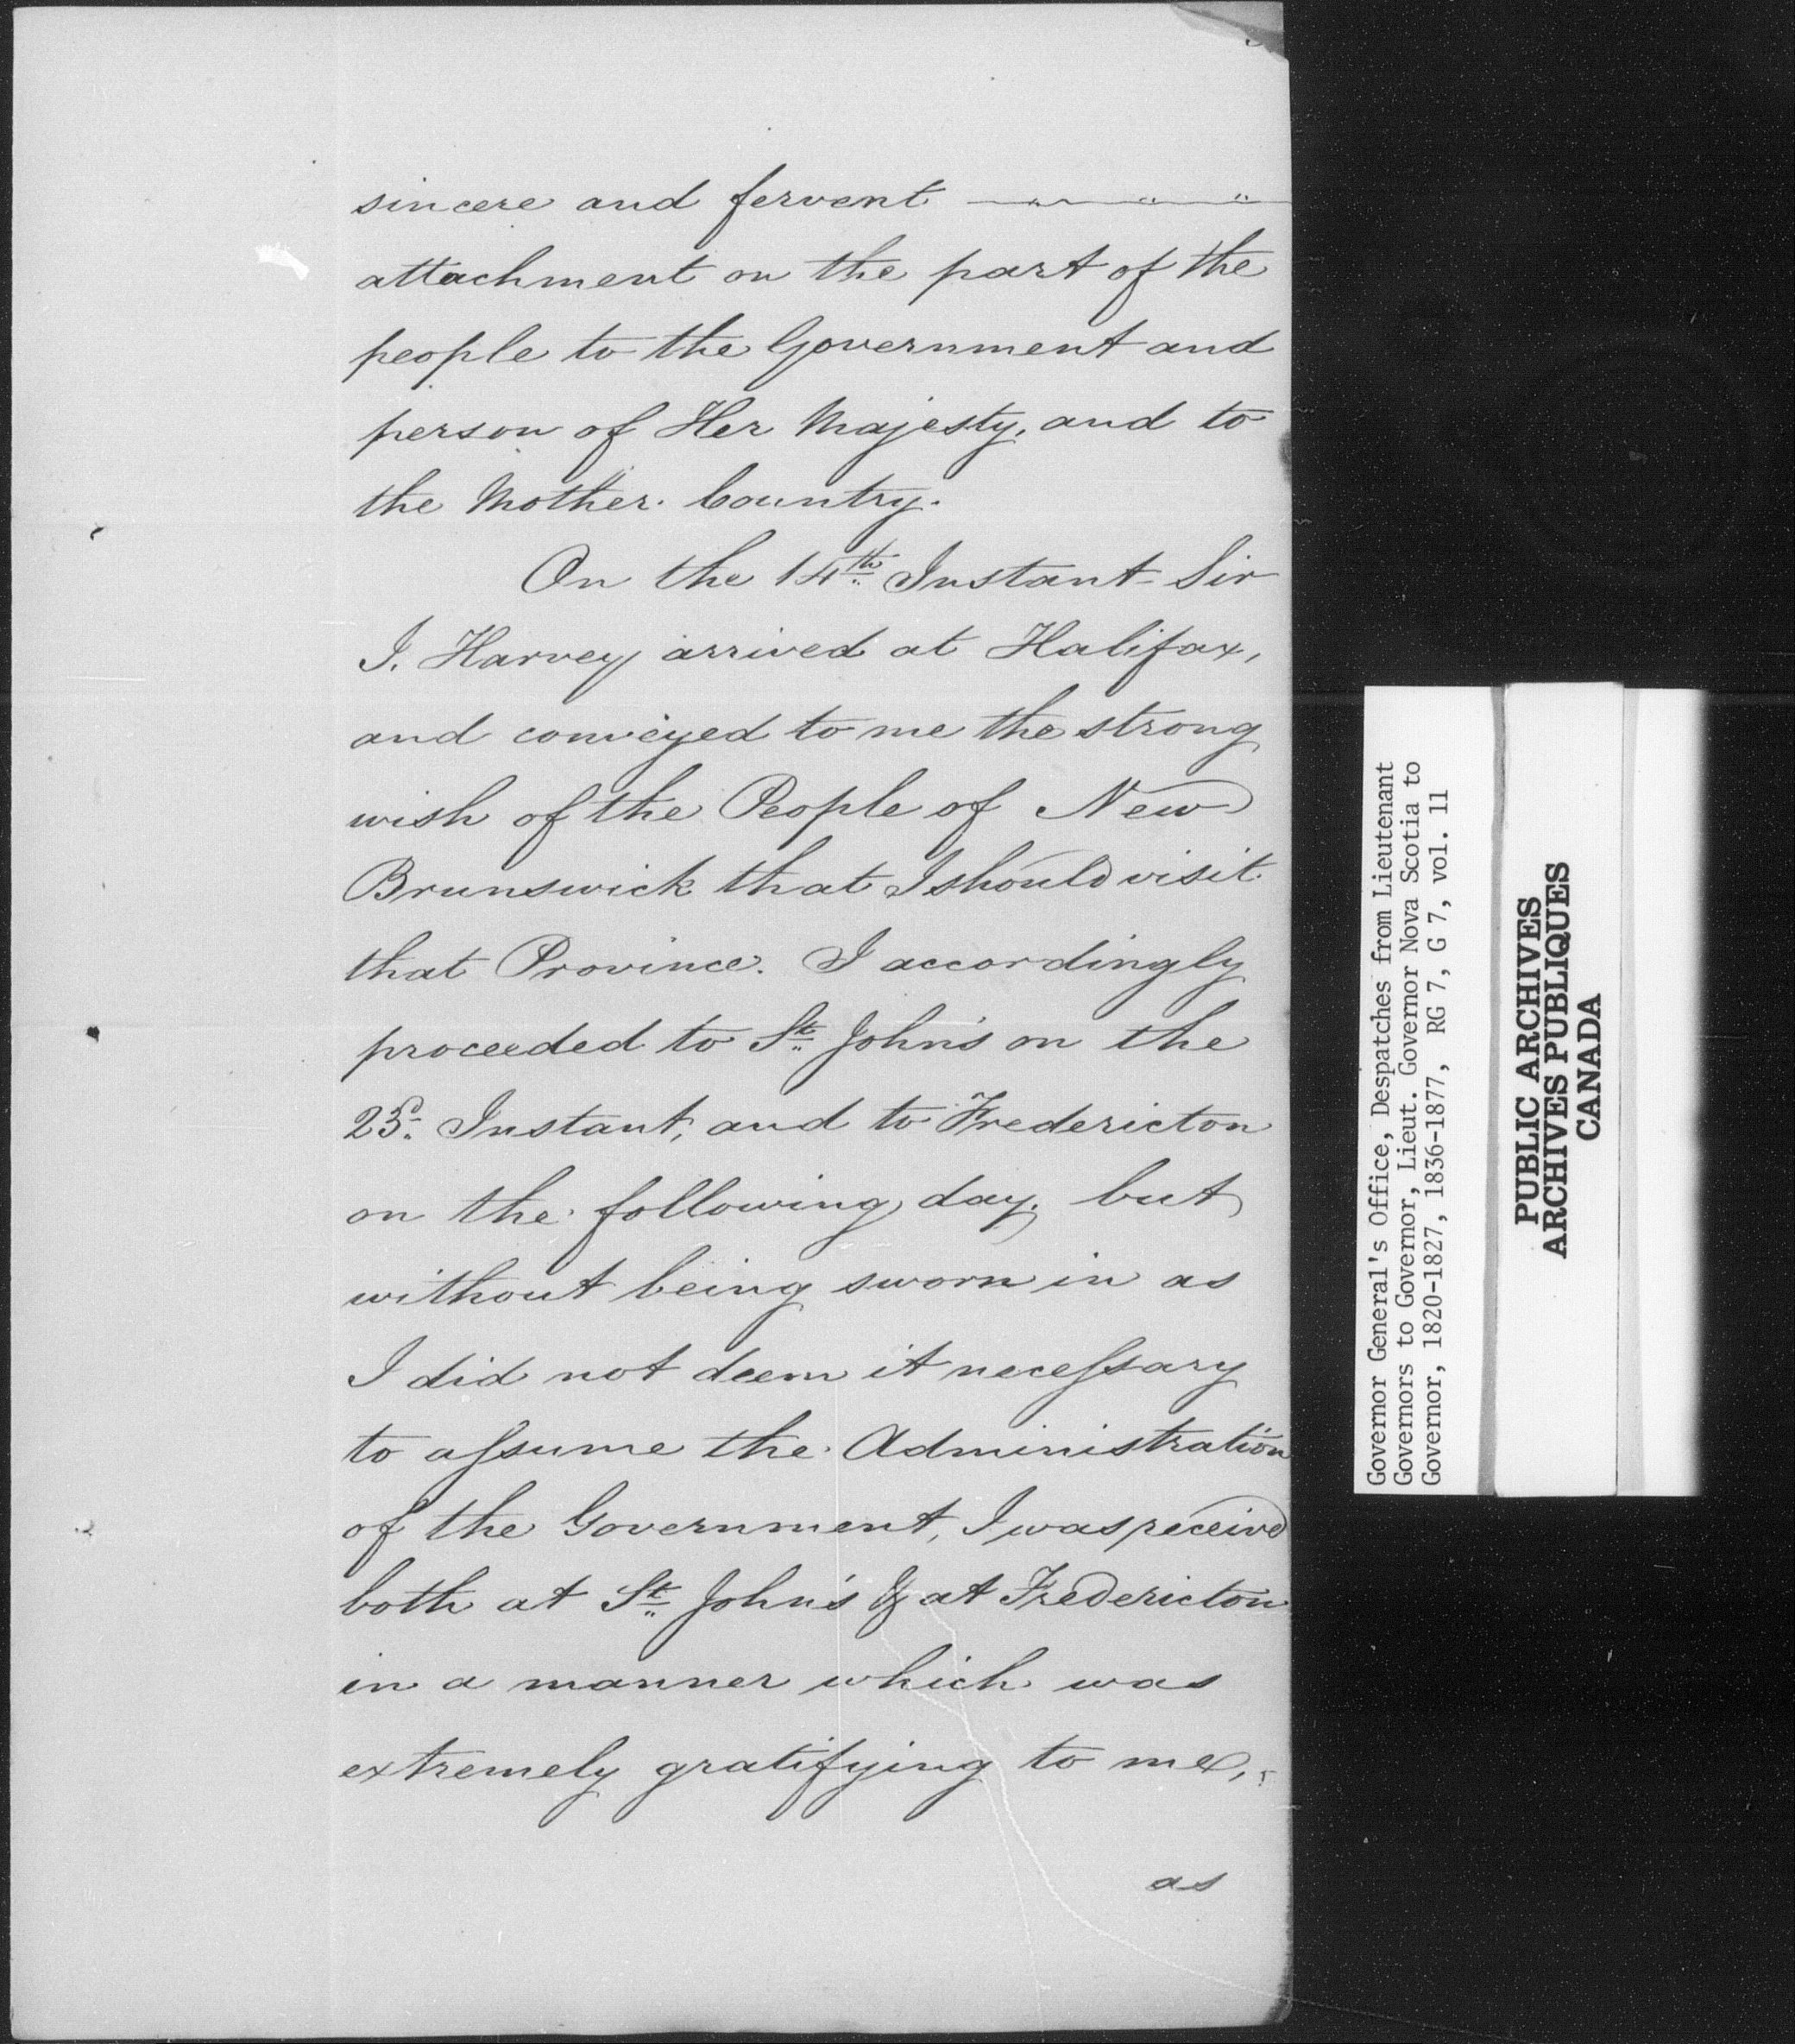 sincere and fervent
attachment on the part of the
people to the Government and
person of Her Majesty, and to
the Mother Country.
On the 14th Instant Sir
J. Harvey arrived at Halifax,
and conveyed to me the strong
wish of the People of New
Brunswick that I should visit
that Province. I accordingly
proceeded to St. John's on the
Instant, and to Fredericton
on the following day, but
without being sworn in as
I did not deem it necessary
to assume the Administration
of the Government, I was received
both at St. John's & at Fredericton
in a manner which was
extremely gratifying to me,
as
Governor General's Office, Despatches from Lieutenant
Governors to Governor, Lieut. Governor Nova Scotia to
Governor, 1820-1827, 1836-1877, RG 7, G 7, vol. 11
PUBLIC ARCHIVES
ARCHIVES PUBLIQUES
CANADA